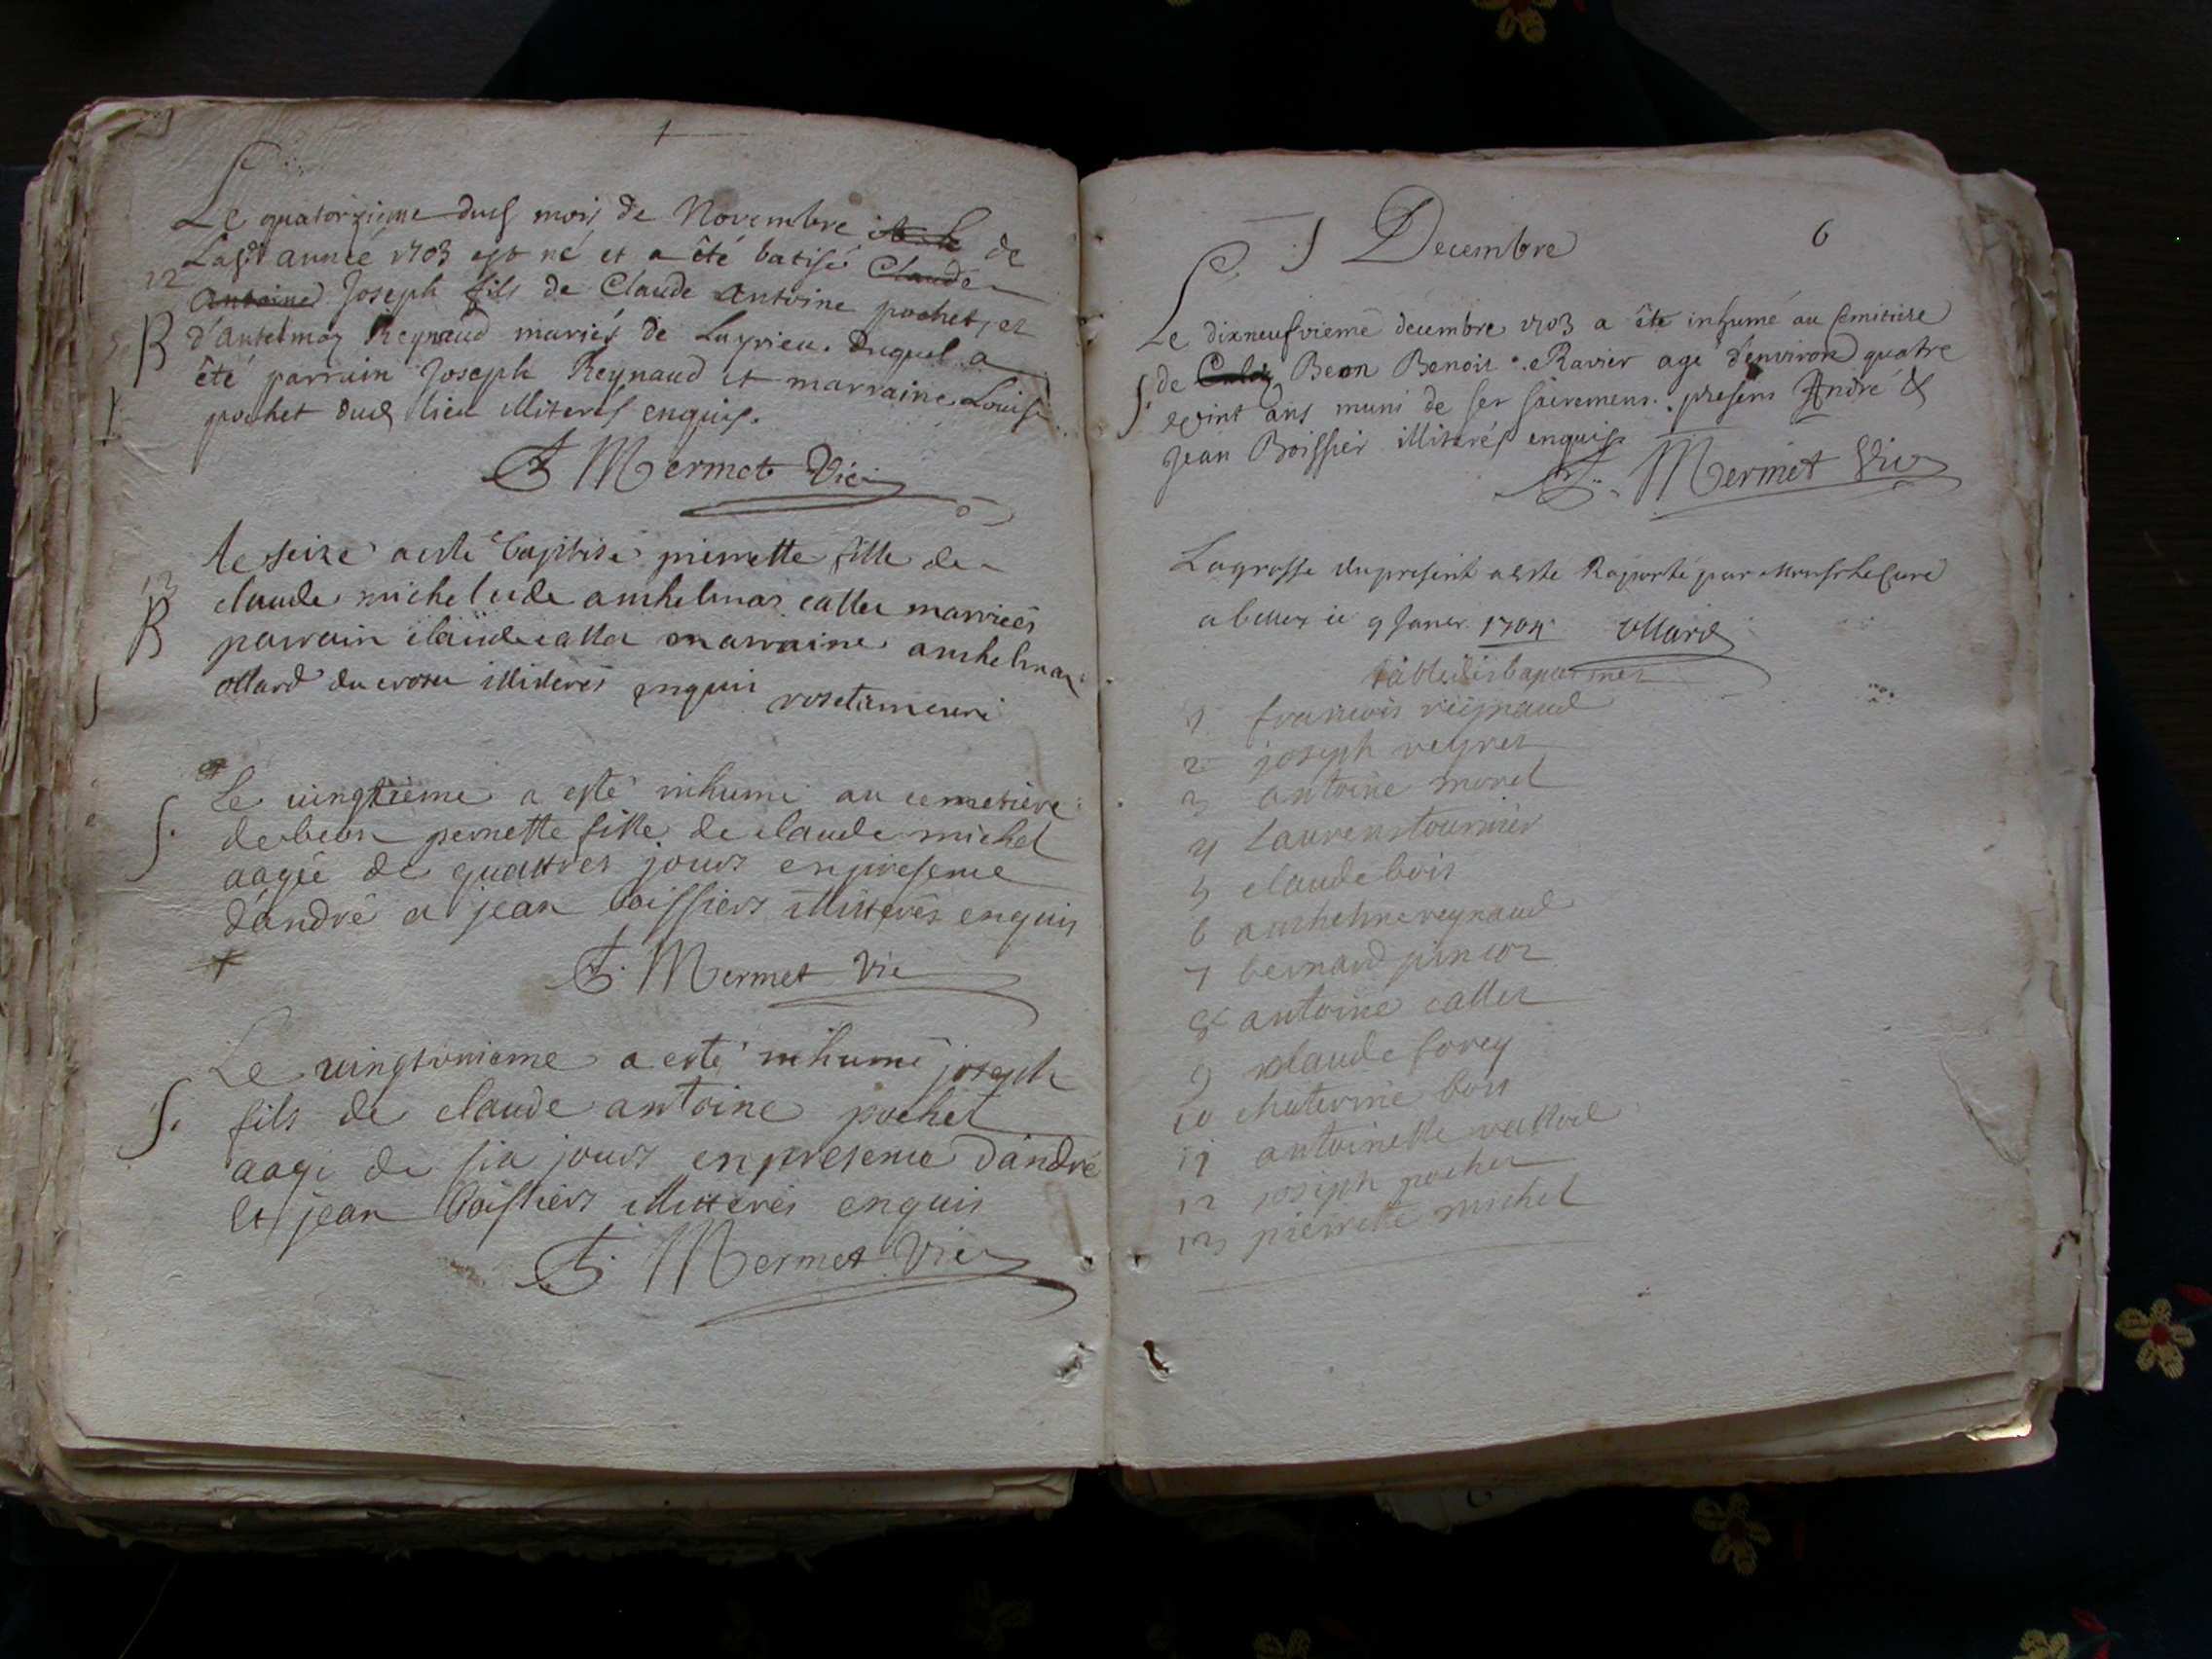 Le quatorzieme dud mois de Novembre de
Lad année 1703 est né et a êté batisé Claude
12
Antoine Joseph fils de Claude Antoine pochet, et
B d'Antelmaz Reynaud mariés de Luyrieu. Duquel a
êté parrain Joseph Reynaud et marraine Louise
pochet dud lieu illiterés enquis.
Mermet Vic
le seize a esté baptisé pierrette fille de
13
B
claude michel et de anthelmaz callet marriés
parrain claude callet marraine anthelmaz
ollard du illiterés enquis
Le vingtieme a esté inhumé au cemetiere
S. de beon pernette fille de claude michel
aagée de quattres jours en presence
d'andré et jean boissiers illitterés enquis
Mermet Vic
Le vingtunieme a esté inhumé joseph
S. fils de claude antoine pochet
aagé de six jours en presence d'andré
et jean boissiers illitterés enquis
Mermet Vic
Decembre
6
Le dixneufvieme decembre 1703 a êté inhumé au cemitiere
S. de Culoz Beon Benoit Ravier agé d'environ quatre
vint ans muni de ses sacremens. presens André &
Jean Boissier illiterés enquis
Mermet Vic
La grosse du present a esté Raporté par Monsr le Curé
a belley ce 9 Janer 1704 Ollard
table des baptesmes
1 francois reignaud
2 joseph veyret
3 antoine morel
4 Laurens tournier
5 claude bois
6 anthelme reynaud
7 bernard
8 antoine callet
9 claude forey
10 chaterine bois
11 antoinette
12 joseph pochet
13 pierrette michel